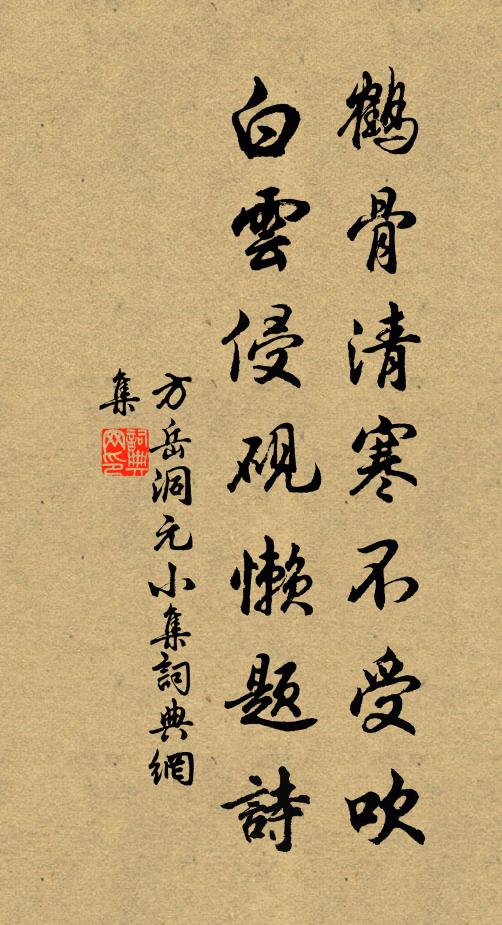 鶴骨清寒不受吹
白雲侵硯懶題詩
方岳洞元小集詞典網
集
詞典網印